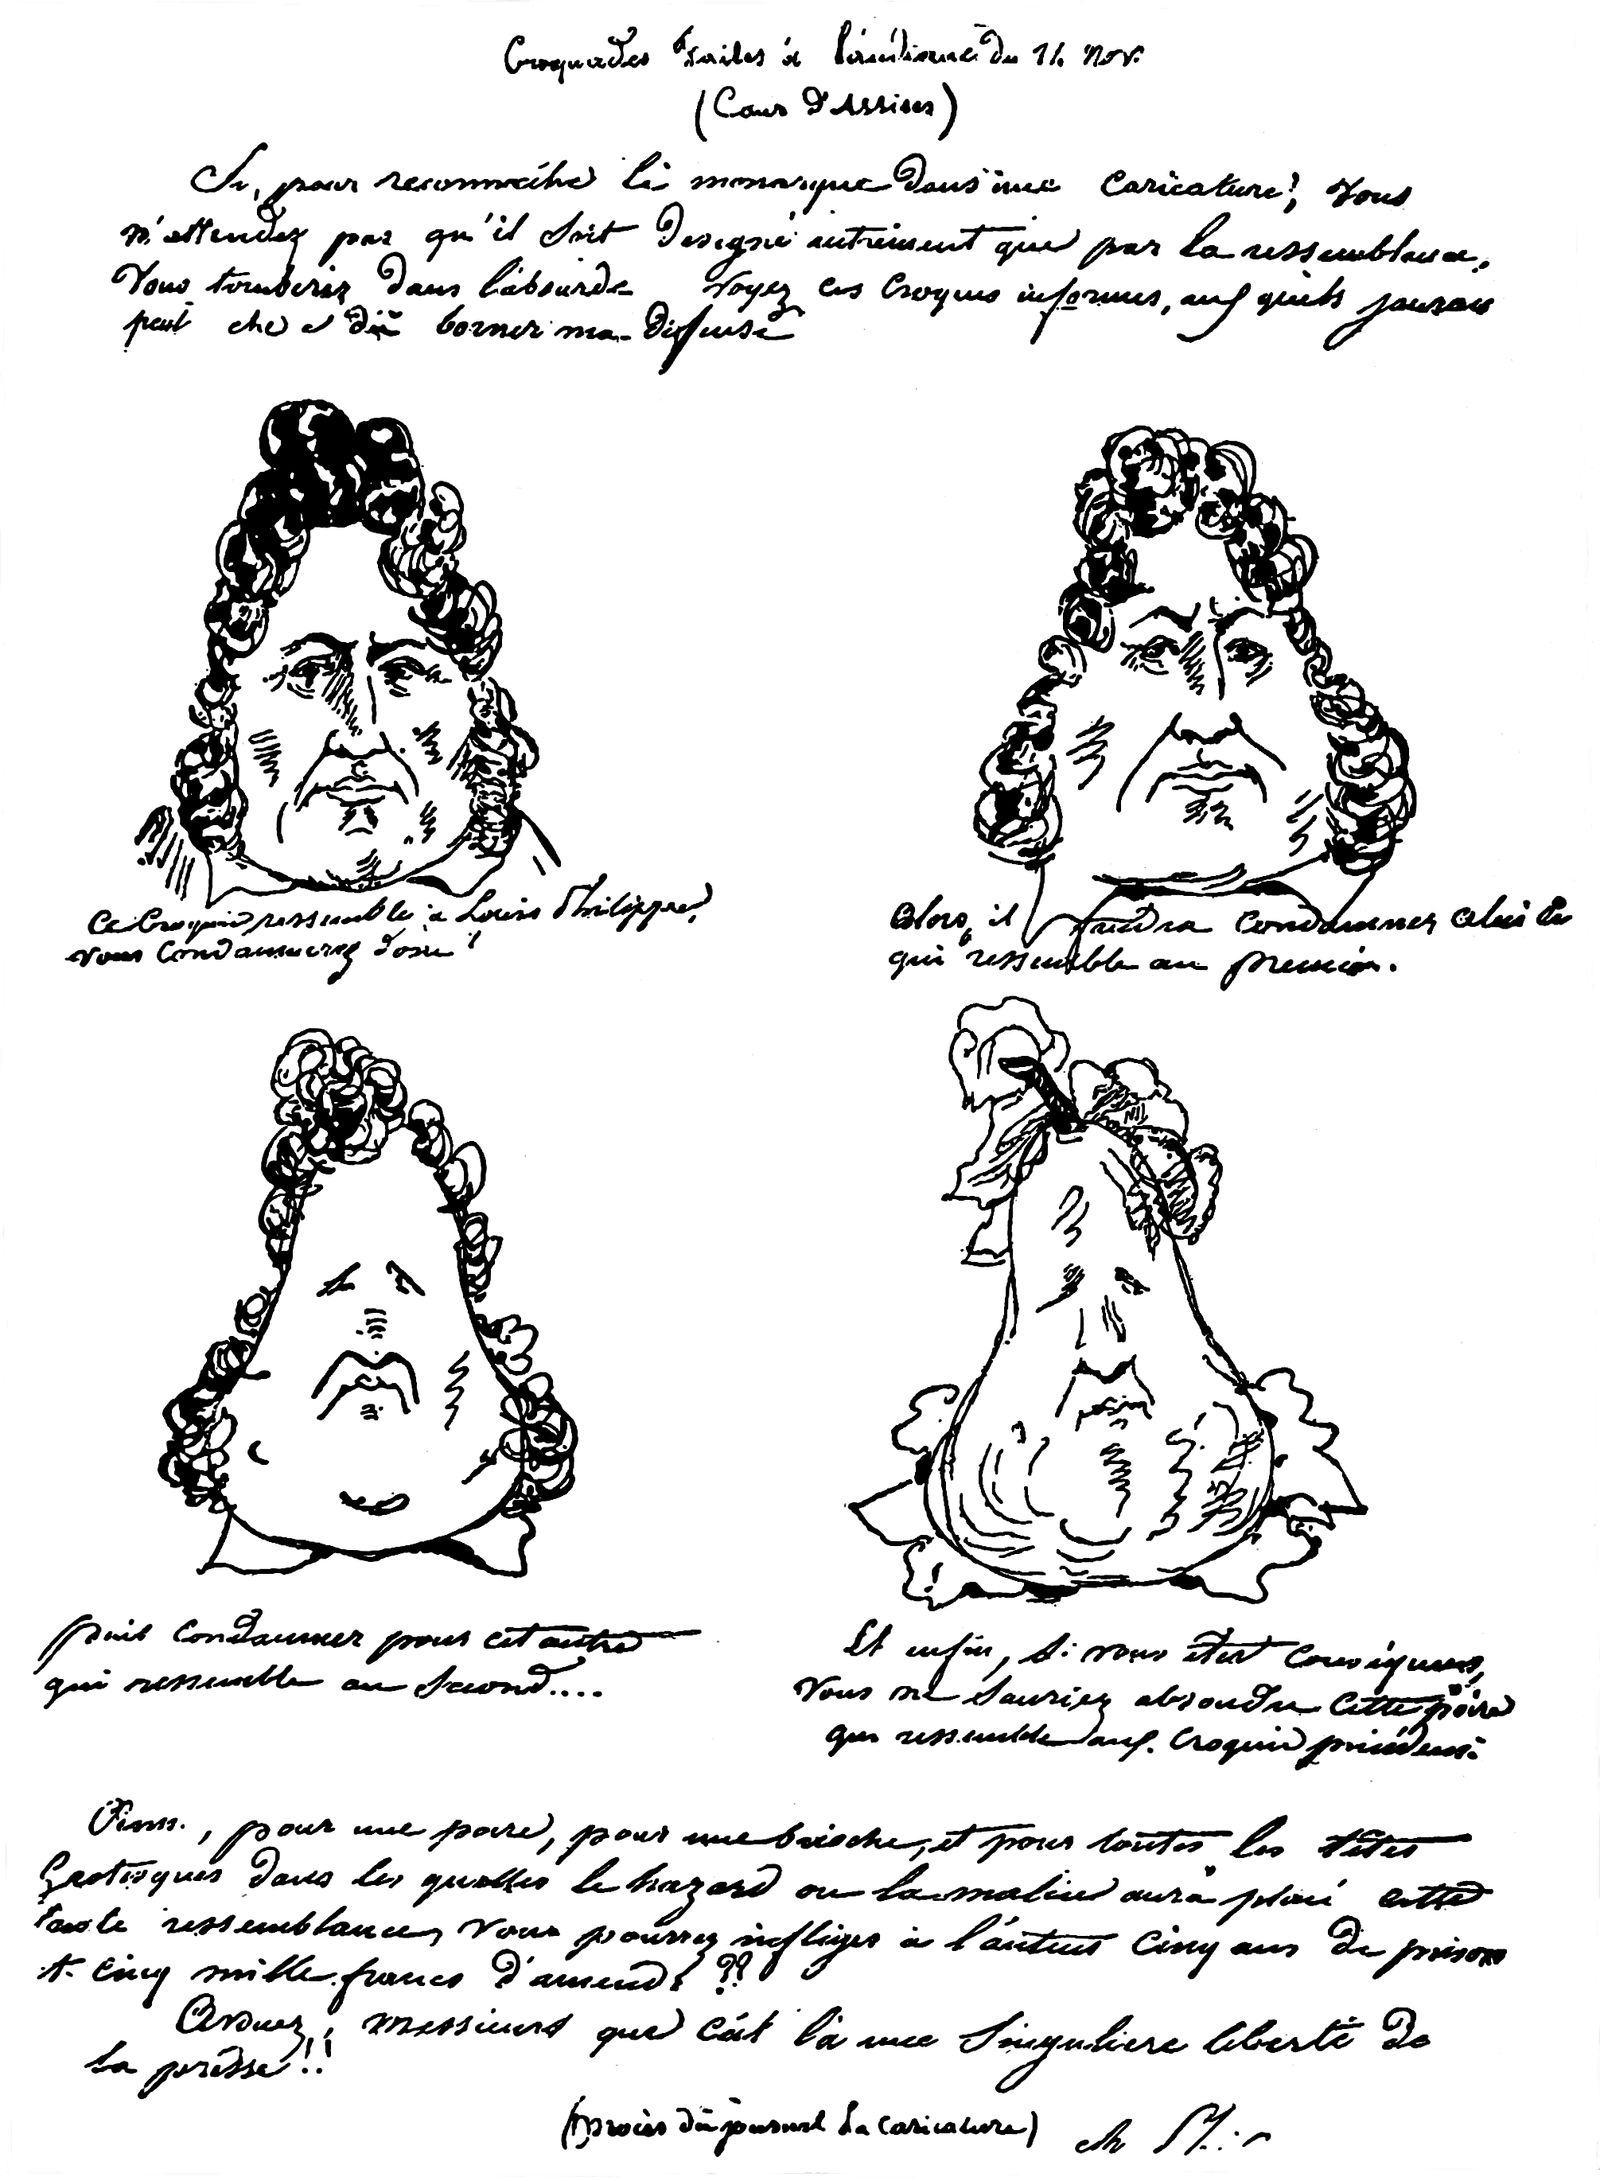 Croquades faites à l'audience du 14 nov.
(Cour d'Assises)
Si, pour reconnaître le monarque dans une caricature, vous
n'attendez pas qu'il soit désigné autrement que par la ressemblance,
vous tomberez dans l'absurde. Voyez ces croquis informes, auxquels j'aurais
peut être dû borner ma défense
Ce croquis ressemble à Louis Philippe,
vous condamnerez donc ?
Alors, il faudra condamner celui-ci
qui ressemble au premier.
Puis condamner pour cet autre
qui ressemble au second....
Et enfin, si vous êtes conséquens,
vous ne sauriez absoudre cette poire
qui ressemble aux croquis précédens.
Ainsi, pour une poire, pour une brioche, et pour toutes les têtes
grotesques dans les quelles le hazard ou la malice aura placé cette
triste ressemblance, vous pourrez infliger à l'auteur cinq ans de prison
et cinq mille francs d'amende ??
Avouez, messieurs que c'est là une singulière liberté de
la presse !!
(procès du journal La Caricature)